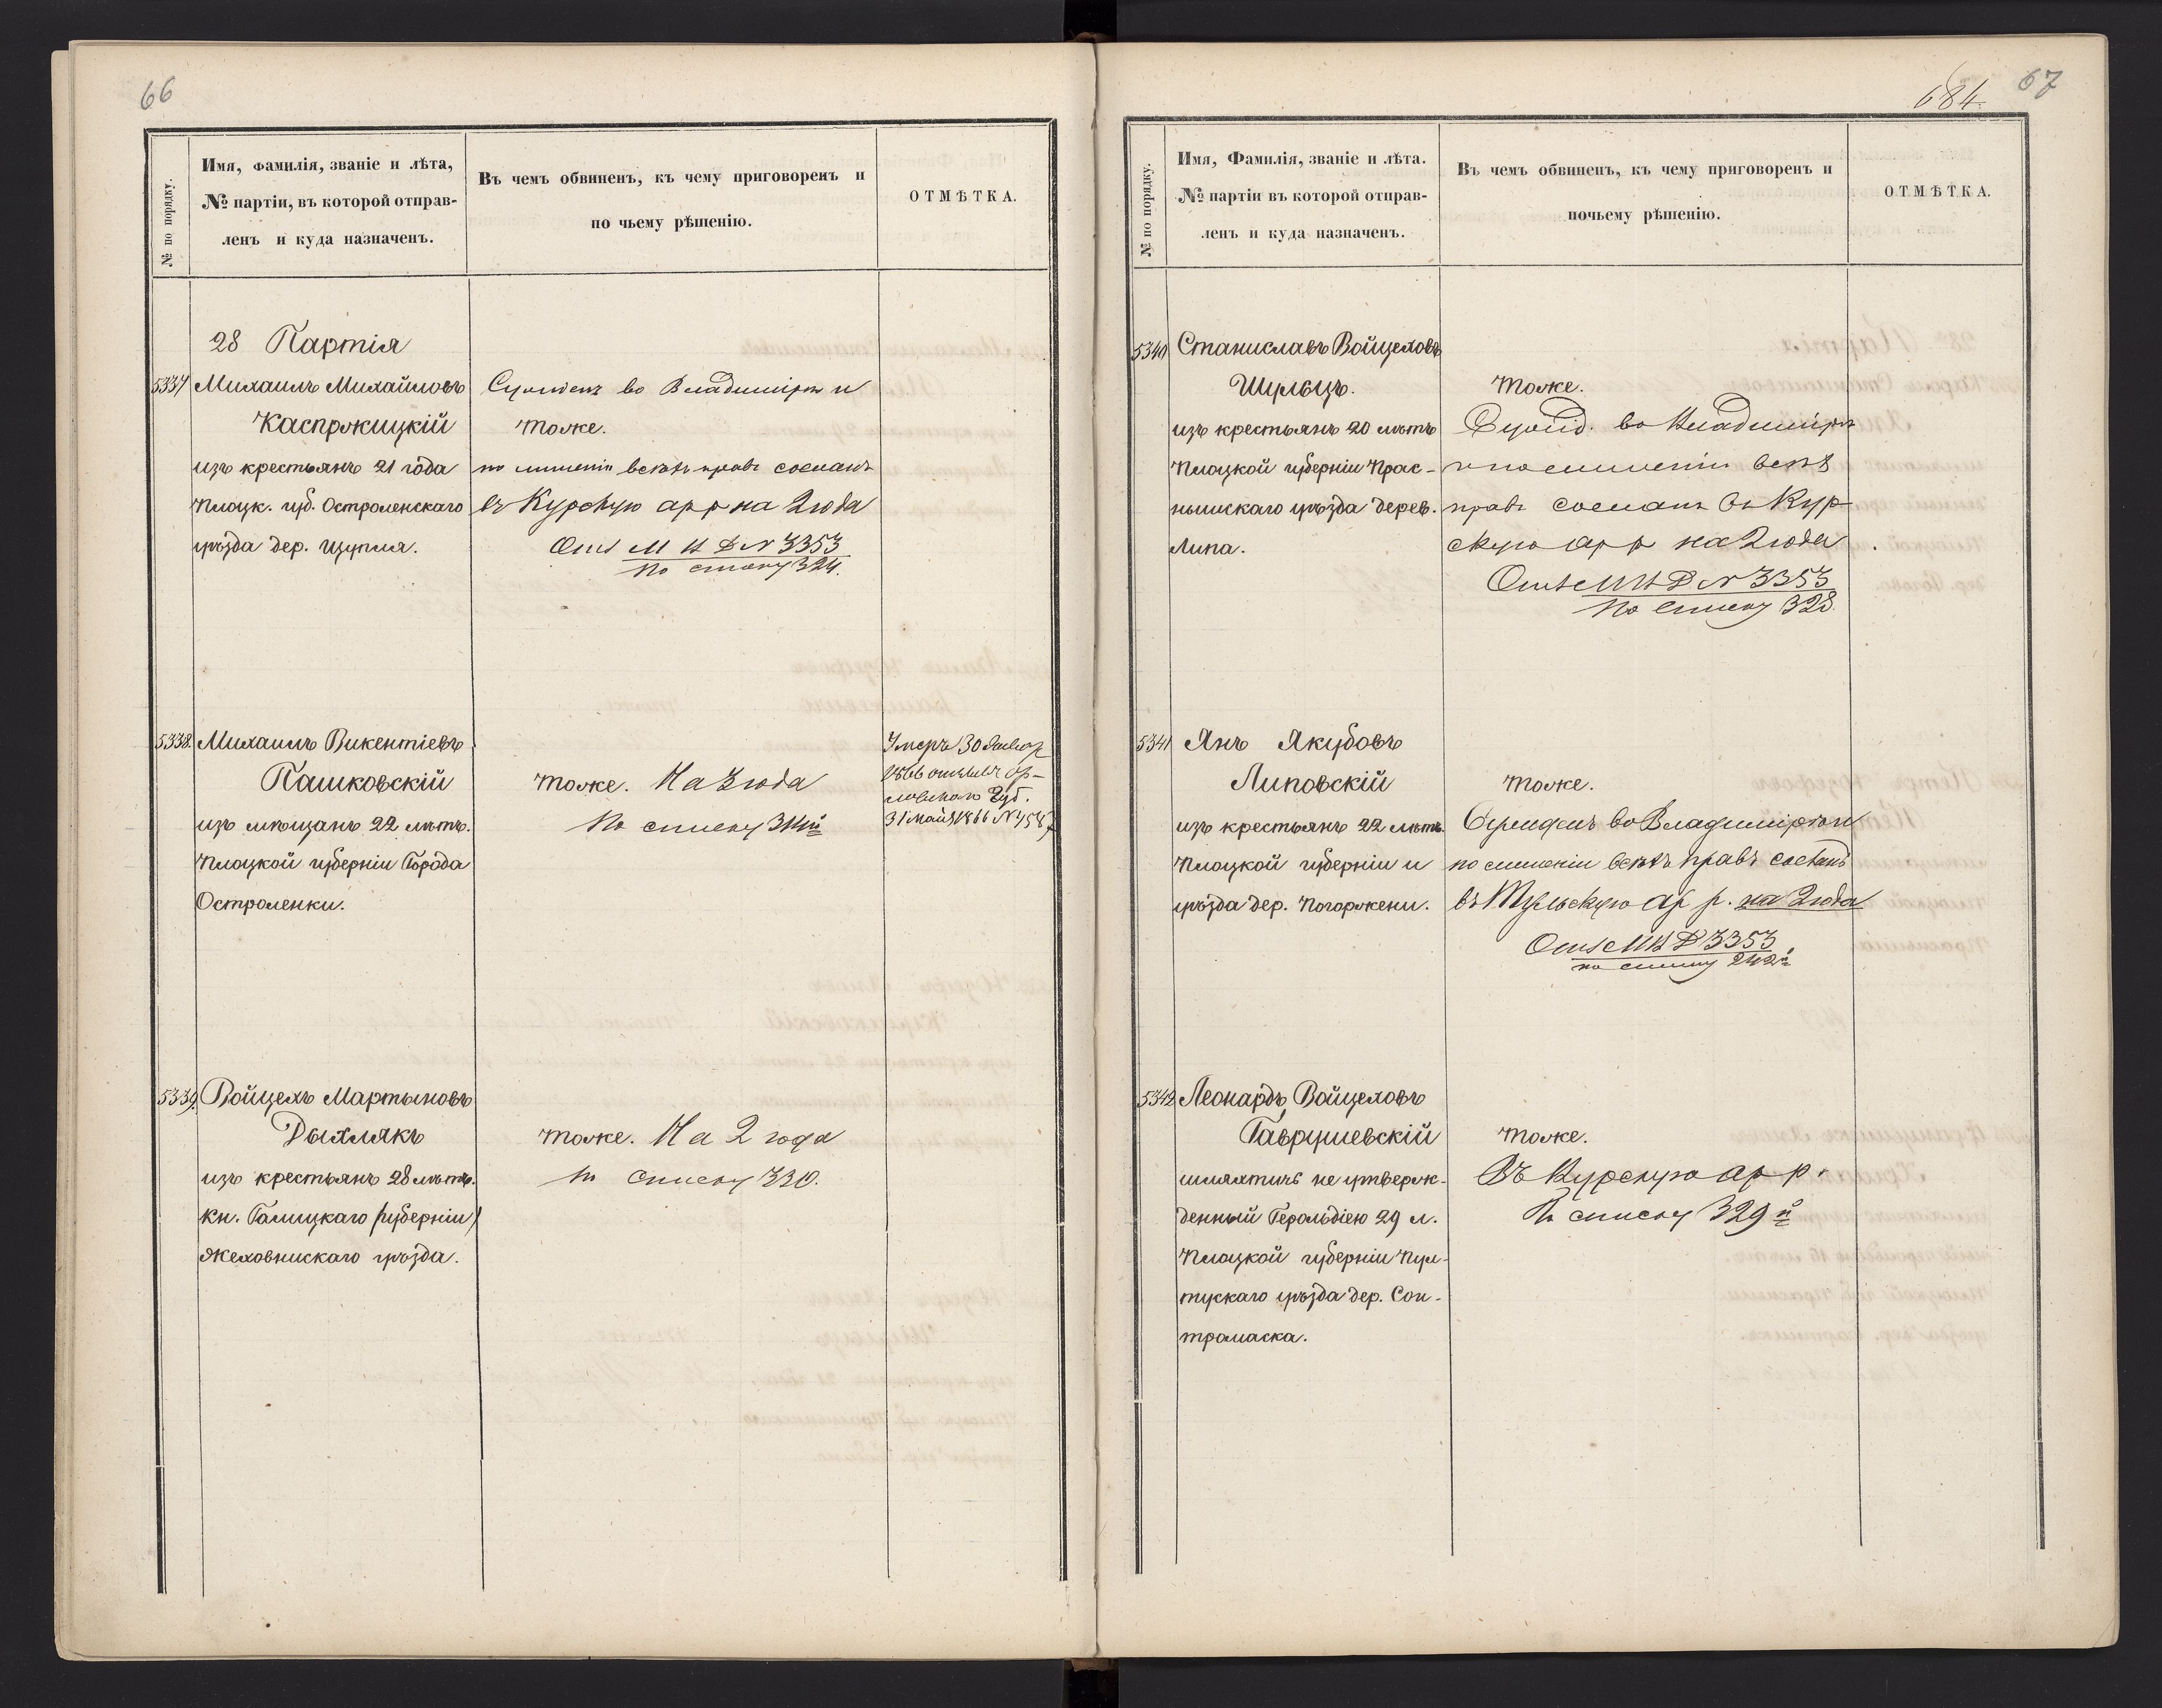 66
№ по порядку.
Имя, фамилія, званіе и лѣта,
№ партіи, въ которой отправ-
ленъ и куда назначенъ.
Въ чемъ обвиненъ, къ чему приговоренъ и
по чьему рѣшенію.
ОТМѢТКА.
28 Партія
5337 Михаилъ Михайловъ
Каспржицкій
изъ крестьянъ 21 года
Плоцк. губ. Остроленскаго
уѣзда дер. Щупля.
Сужденъ во Владимірѣ и
тоже.
по лишеніи всѣхъ правъ сосланъ
въ Курскую ар р на 2 года
Отъ М В Д № 3353
по списку 324.
5338. Михаилъ Викентіевъ
Пашковскій
изъ мѣщанъ 22 лѣтъ.
Плоцкой губерніи Города
Остроленки.
тоже. На 3 года
По списку
Умеръ 30 Январ
1866 ор-
ловскаго Губ.
31 Мая 1866 №
5339. Войцехъ Мартыновъ
Дыхлякъ
изъ крестьянъ 28 лѣтъ.
кн. Галицкаго (губерніи)
Жеховнискаго уѣзда.
тоже. На 2 года
По списку 330.
67
684.
№ по порядку.
Имя, Фамилія, званіе и лѣта.
№ партіи въ которой отправ-
ленъ и куда назначенъ.
Въ чемъ обвиненъ, къ чему приговоренъ и
почьему рѣшенію.
ОТМѢТКА.
5340 Станиславъ Войцеховъ
Шульцъ.
изъ крестьянъ 20 лѣтъ
Плоцкой губерніи Прас-
нышскаго уѣзда дерев.
Липа.
тоже.
Сужд. во Владимірѣ
и по лишеніи всѣхъ
правъ сосланъ въ Кур-
скую ар р на 2 года
Отъ М В Д № 3353
По списку 328.
5341 Янъ Якубовъ
Липовскій
изъ крестьянъ 22 лѣтъ.
Плоцкой губерніи и
уѣзда дер. Погоржени.
тоже.
Сужденъ во Владимірѣ и
по лишеніи всѣхъ правъ сосланъ
въ Тульскую ар р. на 2 года
Отъ М В Д 3353
по списку 242й
5342 Леонардъ Войцеховъ
Гаврушевскій
шляхтичъ не утверж-
денный Герольдіею 29 л.
Плоцкой губерніи Пул-
тускаго уѣзда дер. Сон-
тромаска.
тоже.
Въ Курскую ар р.
По списку 329й